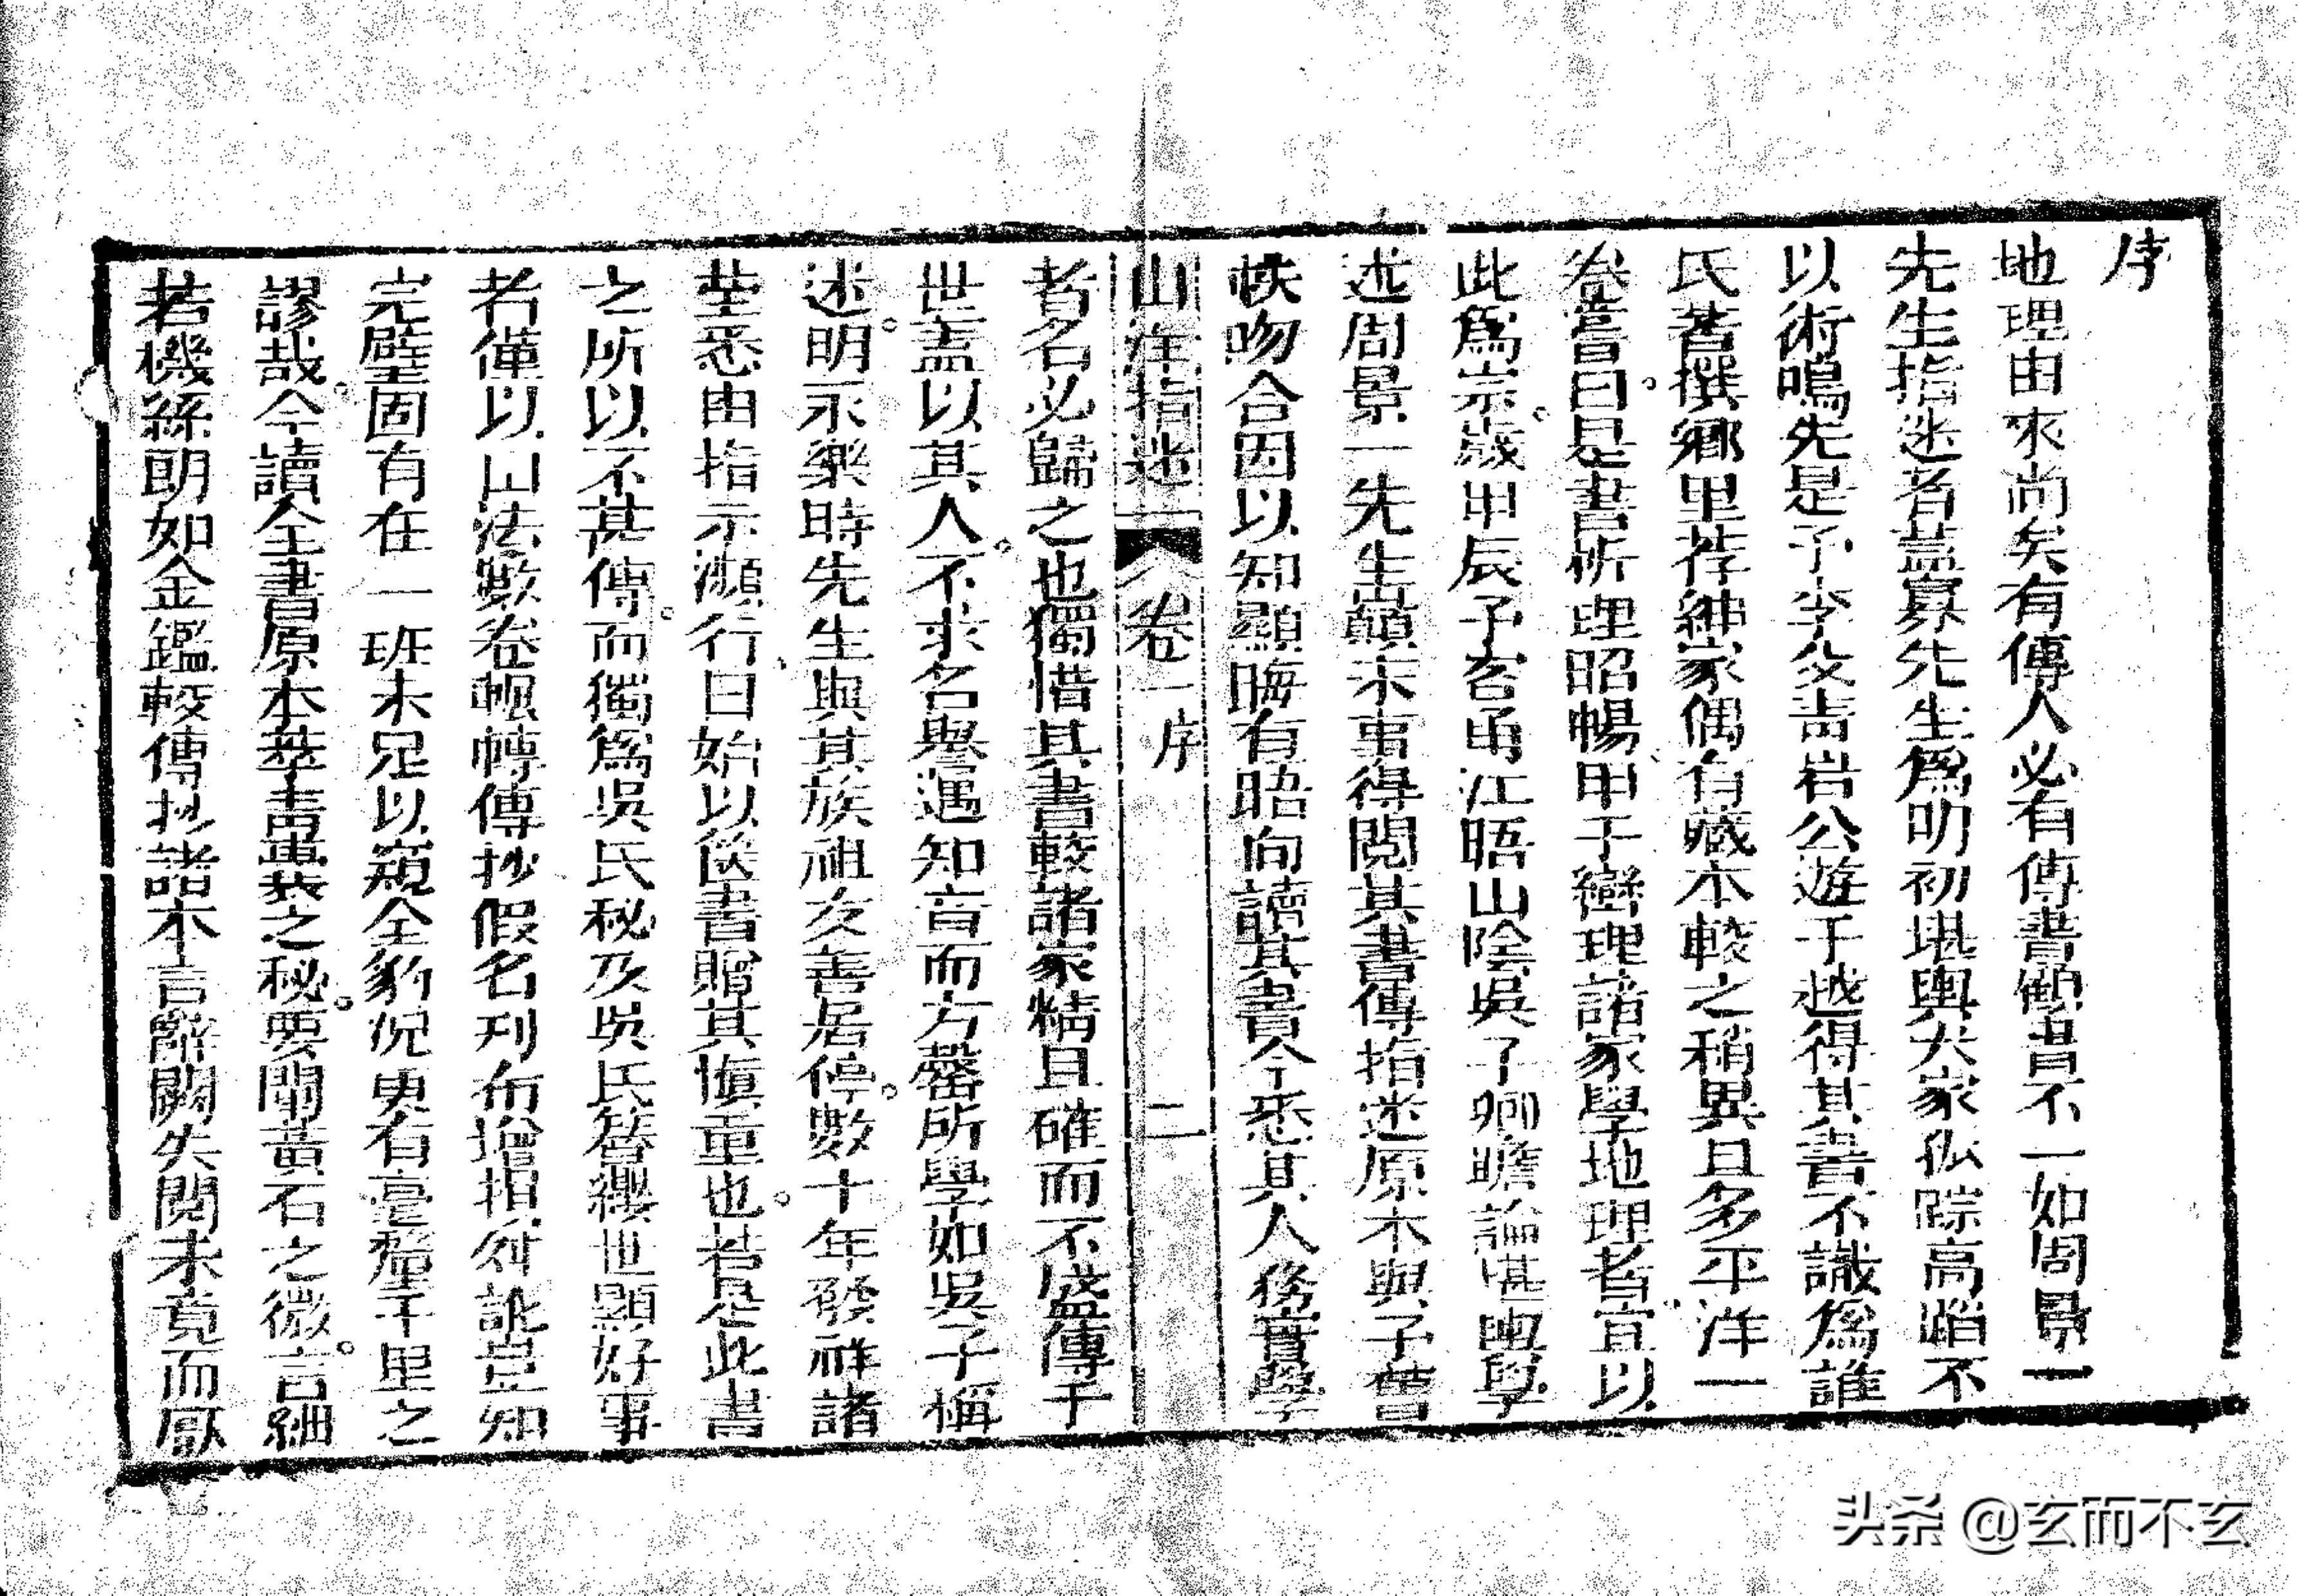 序
地理由來尚矣有傳人必有傳書顧書不一如周景一
先生指迷者蓋寡先生爲明初堪輿大家仙踪高蹈不
以術鳴先是予少年父青岩公遊于越得其書不識爲誰
氏著撰鄉里荐紳家偶有藏本較之稍異且多平洋一
卷嘗曰是書析理昭暢甲于巒理諸家學地理者宜以
此爲宗歲甲辰予客甬江晤山陰吳子卿瞻論堪輿學
述周景一先生顛末事得閱其書傳指迷原本與予曾
帙吻合因以知顯晦有時向讀其書今悉其人務實學
山洋指迷 卷一 序 二
者名必歸之也獨惜其書較諸家精且確而不盛傳于
世蓋以其人不求名譽遇知音而方罄所學如吳子稱
述明永樂時先生與其族祖友善居停數十年發祥諸
塋悉由指示瀕行日始以送書贈其慎重也若是此書
之所以不甚傳而獨爲吳氏秘及吳氏簪纓世顯好事
者僅以山法數卷輾轉傳抄假名刊布增損舛訛豈知
完璧固有在一班未足以窺全豹況更有毫釐千里之
謬哉今讀全書原本萃青囊之秘要闡黃石之微言細
若機絲明如金鑑較傳抄諸本言辭闕失閱未竟而厭
头条 @玄而不玄